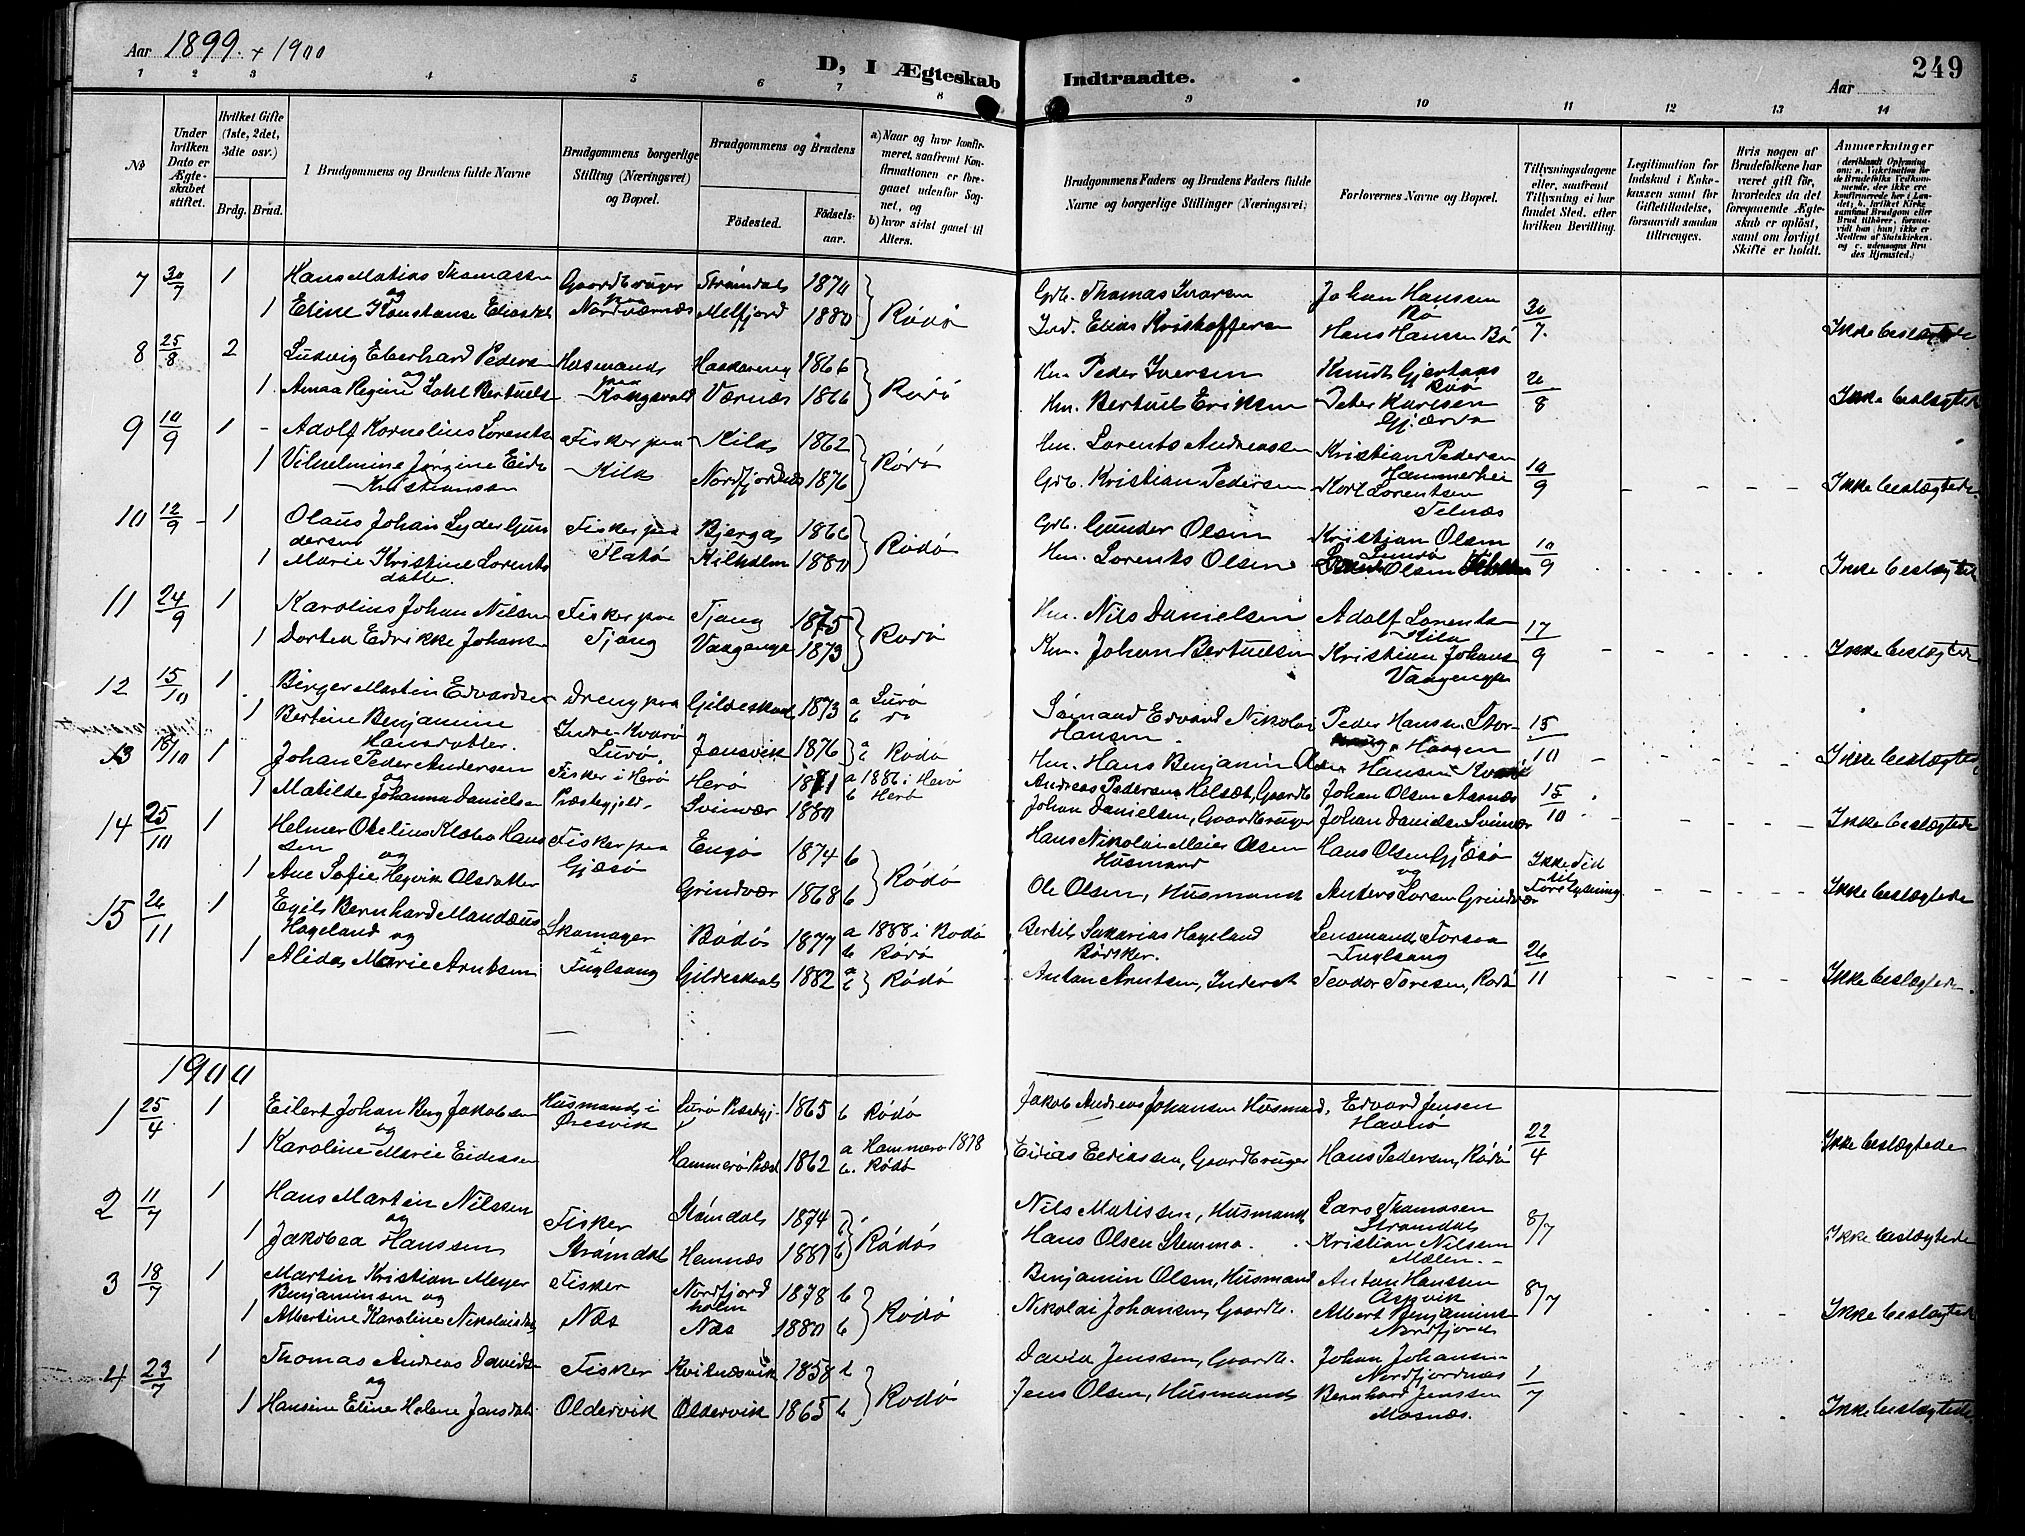 Aar 1899. + 1900
D, I Ægteskab Indtraadte.
Aar
249
1 2 3 4 5 6 7 8 9 10 11 12 13 14
No
Under hvilken Dato er Ægteskabet stiftet.
Hvilket Gifte (1ste, 2det, 3die osv.)
Brdg. Brud.
I Brudgommens og Brudens fulde Navne
Brudgommens borgerlige Stilling (Næringsvei) og Bopæl.
Brudgommens og Brudens
Fødested.
Fødselsaar.
a) Naar og hvor konfirmeret, saafremt Konfirmationen er foregaaet udenfor Sognet, og
b) hvor sidst gaaet til Alters.
Brudgommens Faders og Brudens Faders fulde Navne og borgerlige Stillinger (Næringsvei)
Forlovernes Navne og Bopæl.
Tillysningsdagene eller, saafremt Tillysning ei har fundet Sted, efter hvilken Bevilling.
Legitimation for Indskud i Enkekassen samt for Giftetilladelse, forsaavidt saadan tiltrænges.
Hvis nogen af Brudefolkene har været gift før, hvorledes da det foregaaende Ægteskab er opløst, samt om lovligt Skifte er holdt.
Anmærkninger
7 30/7 1 Hans Matias Thomassen Gaardbruger Strømdal 1870 Grb. Thomas Ivarsen Johan Hanssen
og paa Rødø Bø 30/7.
1 Eline Konstanse Eliasdat Nordværnes Melfjord 1880 Ind. Elias Kristoffersen Hans Hanssen Bø Ikke beslægtede
8 25/8 2 Ludvig Eberhard Pedersen Husmand 1866 Hm. Peder Iversen
og paa Rødø 20/8
1 Anna Regine Bertuels Kongsvold Værnæs 1866 Hm. Bertuel Eriksen Peter Karlsen Ikke beslægtede
Gjærvø
9 10/9 1 - Adolf Kornelius Lorents Fisker paa Kila 1862 Hm. Lorents Andreassen Kristian Pedersen
1 Vilhelmine Jørgine Eids Kila Nordfjordnæs 1876 Rødø Grb. Kristian Pedersen Hammerhei 10/9 Ikke beslægtede
Kristianssen Karl Lorentsen
Telnæs
10 12/9 1 Olaus Johan Lyder Gun Fisker paa Bjerga 1866 Grb. Gunder Olsen Kristian Olsen
dersen Flatø Rødø 10/9
1 Marie Kristine Lorents Kilholm 1880 Hm. Lorents Olsen Olsen Ikke beslægtede
datter.
11 24/9 1 Karolius Johan Nilsen Fisker paa Tjong 1875 Hm. Nils Danielsen Adolf Lorents
Rødø Kila 17/9
1 Dortea Edrikke Johans Tjong Vaagenga 1873 Hm. Johan Bertuelsen Kristian Johans Ikke beslægtede
Vaagenga
12 15/10 1 Birger Martin Edvardsen Dreng paa Gildeskaal 1873 a Lurø
b do
1 Bertine Benjamine Indre Kvarø Sømand Edvard Nikolai Peder Hansen Stor- 15/10
Hansdatter. Lurø. Jonsvik 1876 a b Rødø Hansen Haagen
13 18/10 1 Johan Peder Andersen Fisker i Herø Herø 1871 a 1886 i Herø Hm. Hans Benjamin Olsen Hansen Kvarø Ikke beslægtede
og b Herø Andreas Pedersen Gaardb Johan Olsen Aarnæs 15/10
1 Matilde Johanna Danielsen Præstegjeld. Svinvær 1880 Johan Danielsen, Gaardbruger Johan Daniels Svinvær Ikke beslægtede
14 25/10 1 Helmer Otelius Klæbo Hans Fisker paa Engøs 1874 b Hans Nikolai Maier Olsen Hans Olsen Gjæsø
sen og Gjæsø Rødø Husmand og Ikke Tid til
1 Ane Sofie Hegvik Olsdatter Grindvær 1868 b Ole Olsen, Husmand Anders Larsen Grindvær Forelysning Ikke beslægtede
15 26/11 1 Egils Bernhard Mandæus Skomager Bodø 1877 a 1888 i Bodø Bertil Sakarias Hageland Lensmand Forsaa
Hageland og i b Rødø Bødker. Fuglsang 26/11
1 Alida Marie Arntsen Fuglsang Gildeskaal 1882 a b Rødø Anton Arntsen, Inderst Teodor Toresen, Rødø Ikke beslægtede
1900
1 25/4 1 Eilert Johan Berg Jakobsen Husmand i Lurø Præstgj. 1865 b Rødø Jakob Andreas Johansen Husmand, Edvard Jensen
og Øresvik Havnø 22/4
1 Karoline Marie Eidessen Hammerø Præst 1862 a Hammerø 1878 Elias Eriassen, Gaardbruger Hans Pedersen, Rødø Ikke beslægtede
b. Rødø
2 11/7 1 Hans Martin Nilssen Fisker Strømdal 1874 Nils Matissen, Husmand Lars Thomasen
og Rødø Strømdal 8/7
1 Jakobea Hanssen Strømdal Hemnæs 1881 b Hans Olsen Stemmo. Kristian Nilsen Ikke beslægtede
Mælen.
3 18/7 1 Martin Kristian Meyer Fisker Nordfjord 1878 b Benjamin Olsen, Husmand Anton Hanssen
Benjaminsen og holm Rødø Aspvik 8/7
1 Albertine Karoline Nikolaisdat. Næs Næs 1880 b Nikolai Johansen, Gaardb. Albert Benjamins Ikke beslægtede
Nordfjord
4 23/7 1 Thomas Andreas Davids Fisker Kviknæsvik 1858 b David Jenssen, Gaardb. Johan Johansen
og Rødø Nordfjordnæs 1/7
1 Hansine Eline Helene Jensdat. Oldervik Oldervik 1865 b Jens Olsen, Husmand Bernhard Jenssen Ikke beslægtede
Mosnæs.